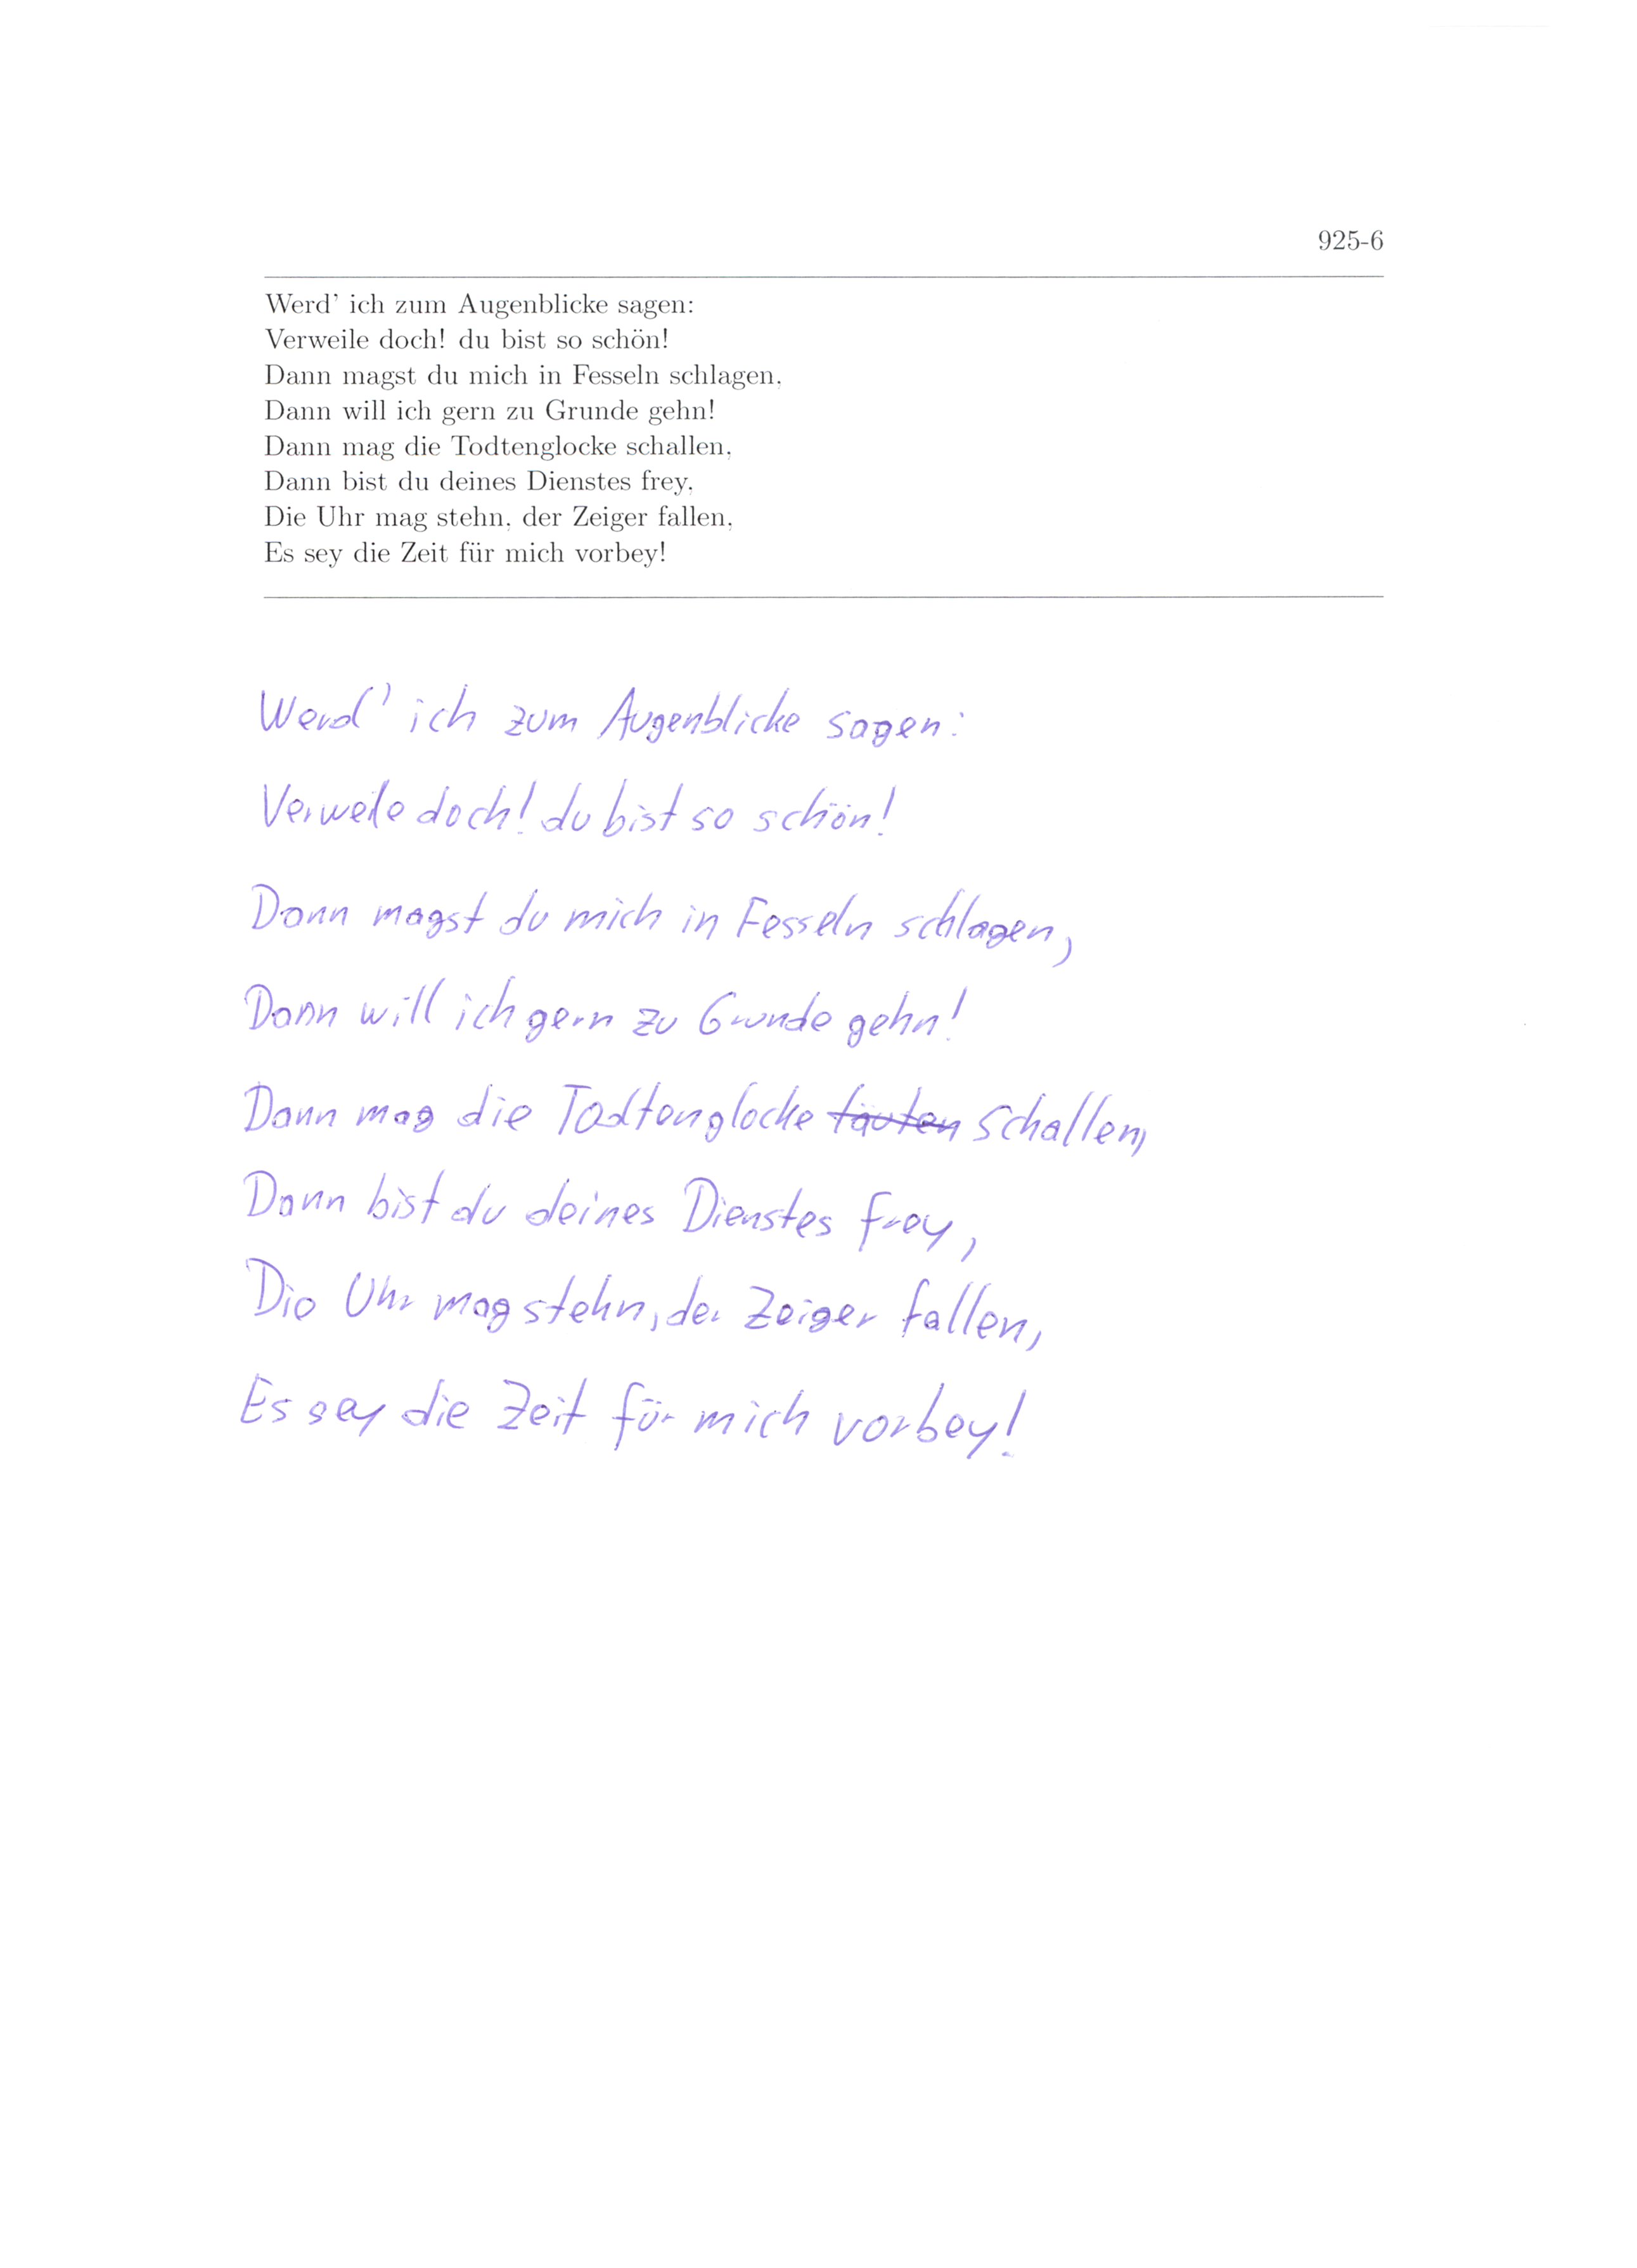 925-6
Werd' ich zum Augenblicke sagen:
Verweile doch! du bist so schön!
Dann magst du mich in Fesseln schlagen,
Dann will ich gern zu Grunde gehn!
Dann mag die Todtenglocke schallen,
Dann bist du deines Dienstes frey,
Die Uhr mag stehn, der Zeiger fallen,
Es sey die Zeit für mich vorbey!
Werd' ich zum Augenblicke sagen:
Verweile doch! du bist so schön!
Dann magst du mich in Fesseln schlagen,
Dann will ich gern zu Grunde gehn!
Dann mag die Todtenglocke schallen,
Dann bist du deines Dienstes frey,
Die Uhr mag stehn, der Zeiger fallen,
Es sey die Zeit für mich vorbey!